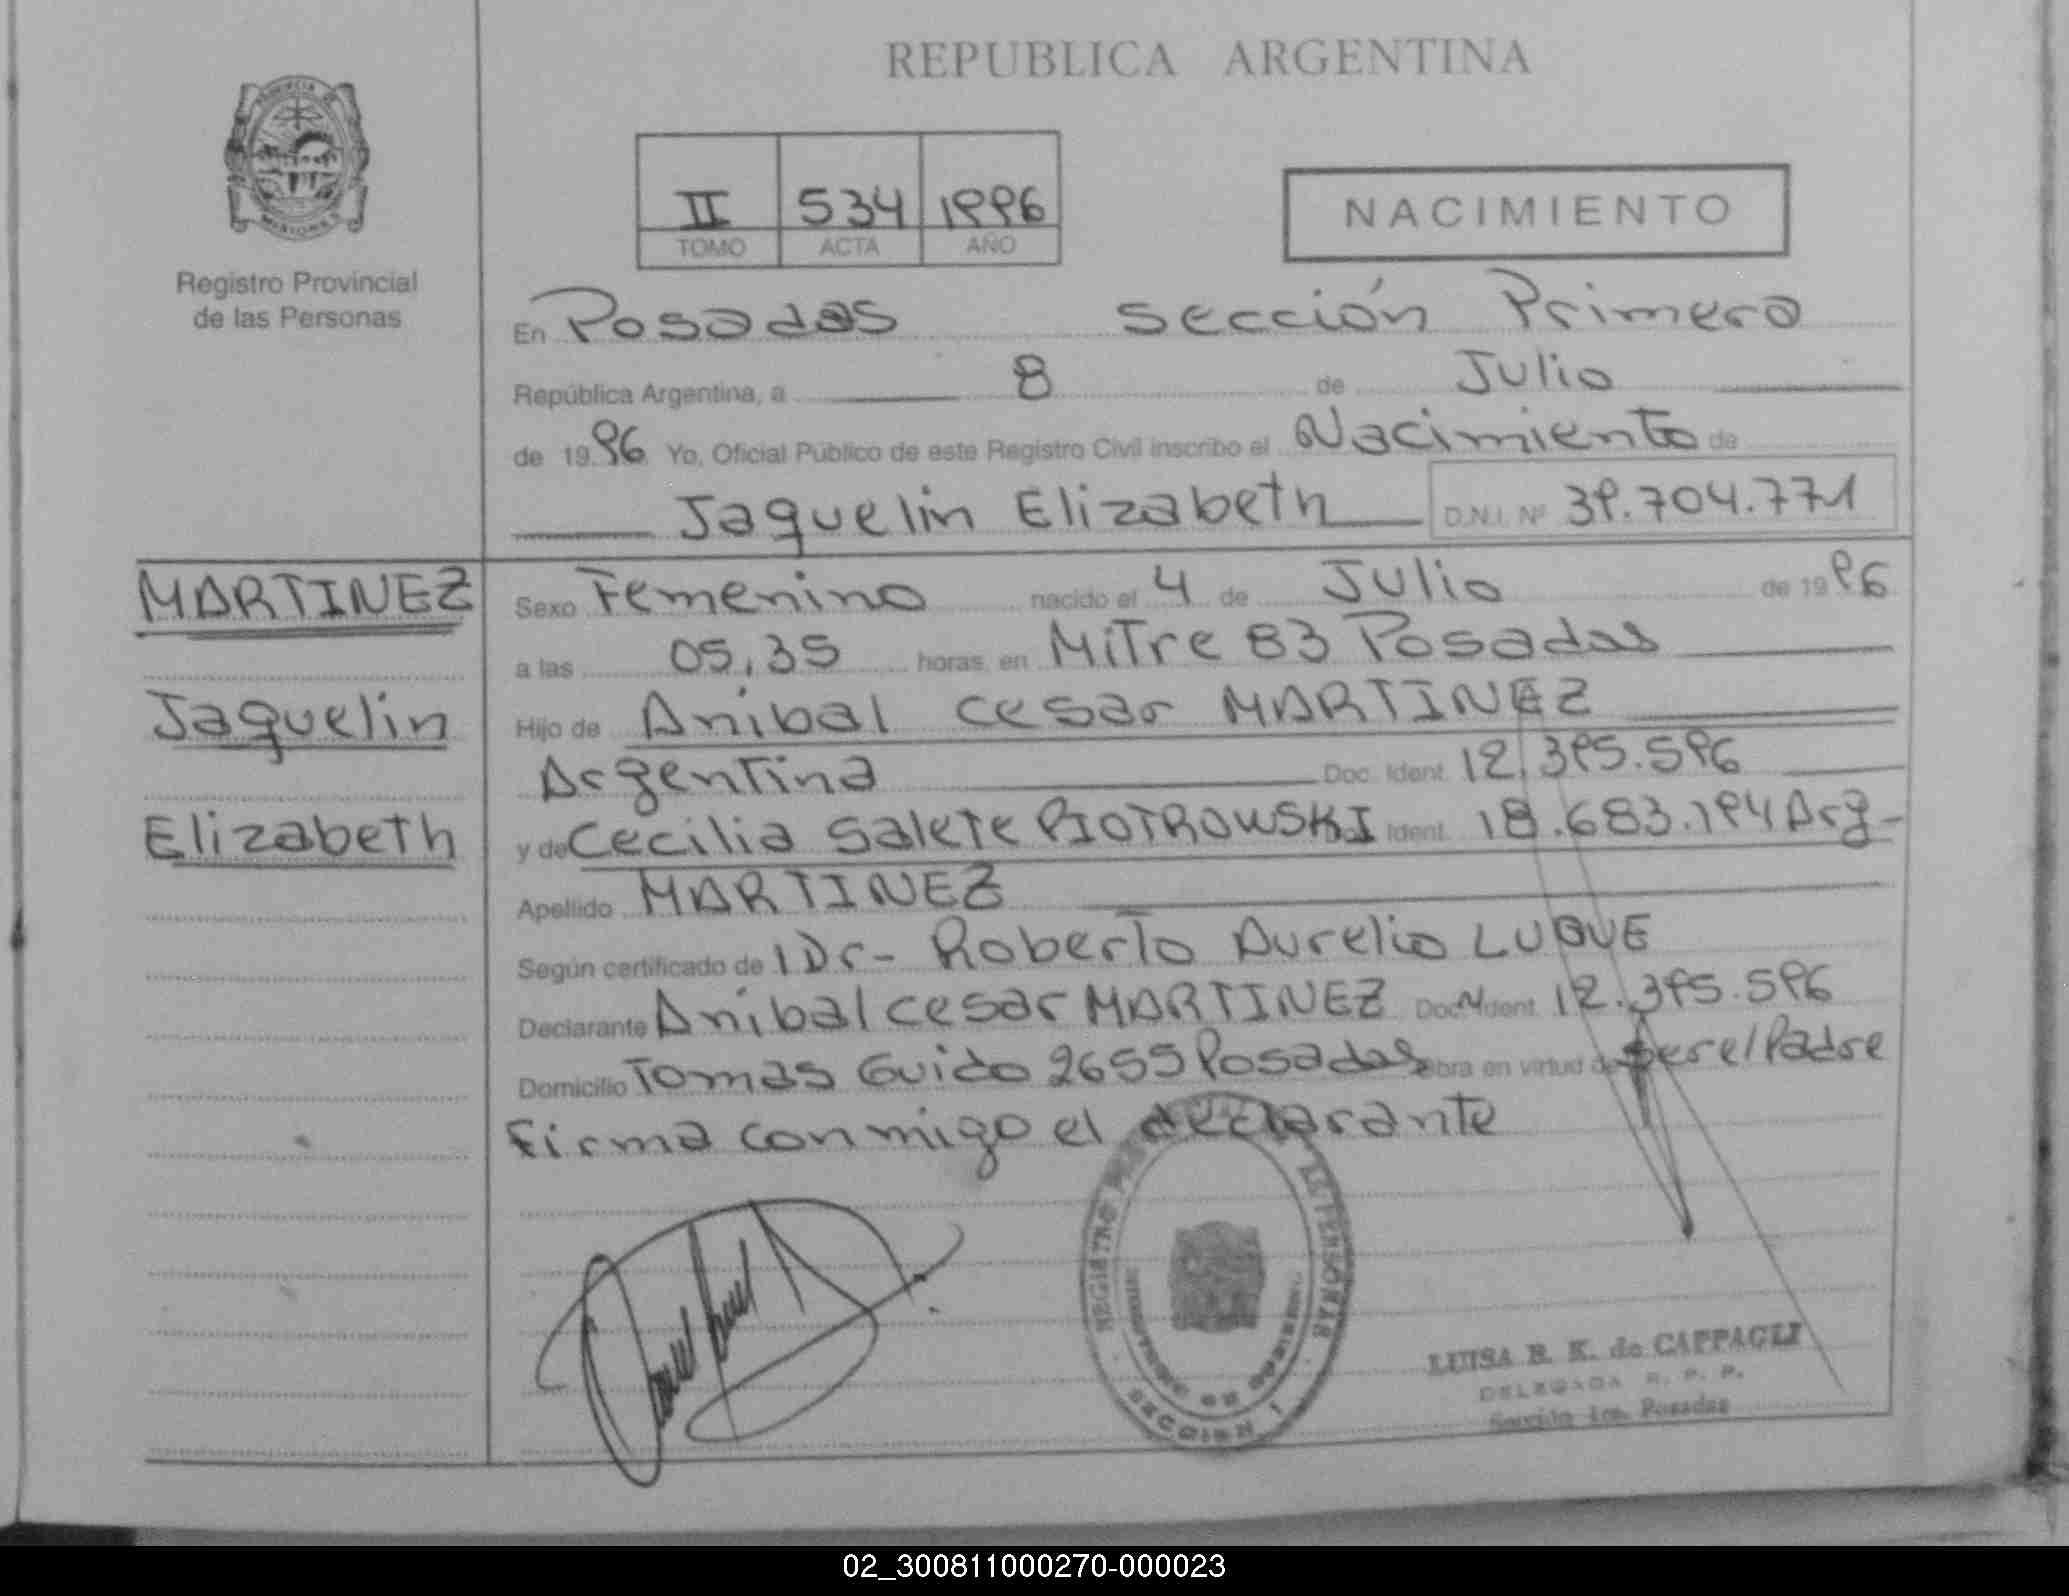 REPUBLICA ARGENTINA
PROVINCIA DE
MISIONES
Registro Provincial
de las Personas
II 534 1996
TOMO ACTA AÑO
NACIMIENTO
En Posadas sección Primera
República Argentina, a 8 de Julio
de 1996 Yo, Oficial Público de este Registro Civil inscribo el Nacimiento de
Jaquelin Elizabeth D.N.I. Nº 39.704.771
MARTINEZ
Jaquelin
Elizabeth
Sexo Femenino nacido el 4 de Julio de 1996
a las 05,35 horas, en Mitre 83 Posadas
Hijo de Anibal Cesar MARTINEZ
Argentina Doc. Ident. 12.395.596
y de Cecilia Salete PIOTROWSKI Ident. 18.683.194 Arg-
Apellido MARTINEZ
Según certificado de 1 Dr- Roberto Aurelio LUQUE
Declarante Anibal Cesar MARTINEZ Doc. Ident. 12.395.596
Domicilio Tomas Guido 2655 Posadas Obra en virtud de ser el Padre
Firma conmigo el declarante
REGISTRO LAS PERSONAS
SECCION 1
LUISA B. K. de CAPPAGLI
DELEGADA R. P. P.
Sección 1ra. Posadas
02_300811000270-000023